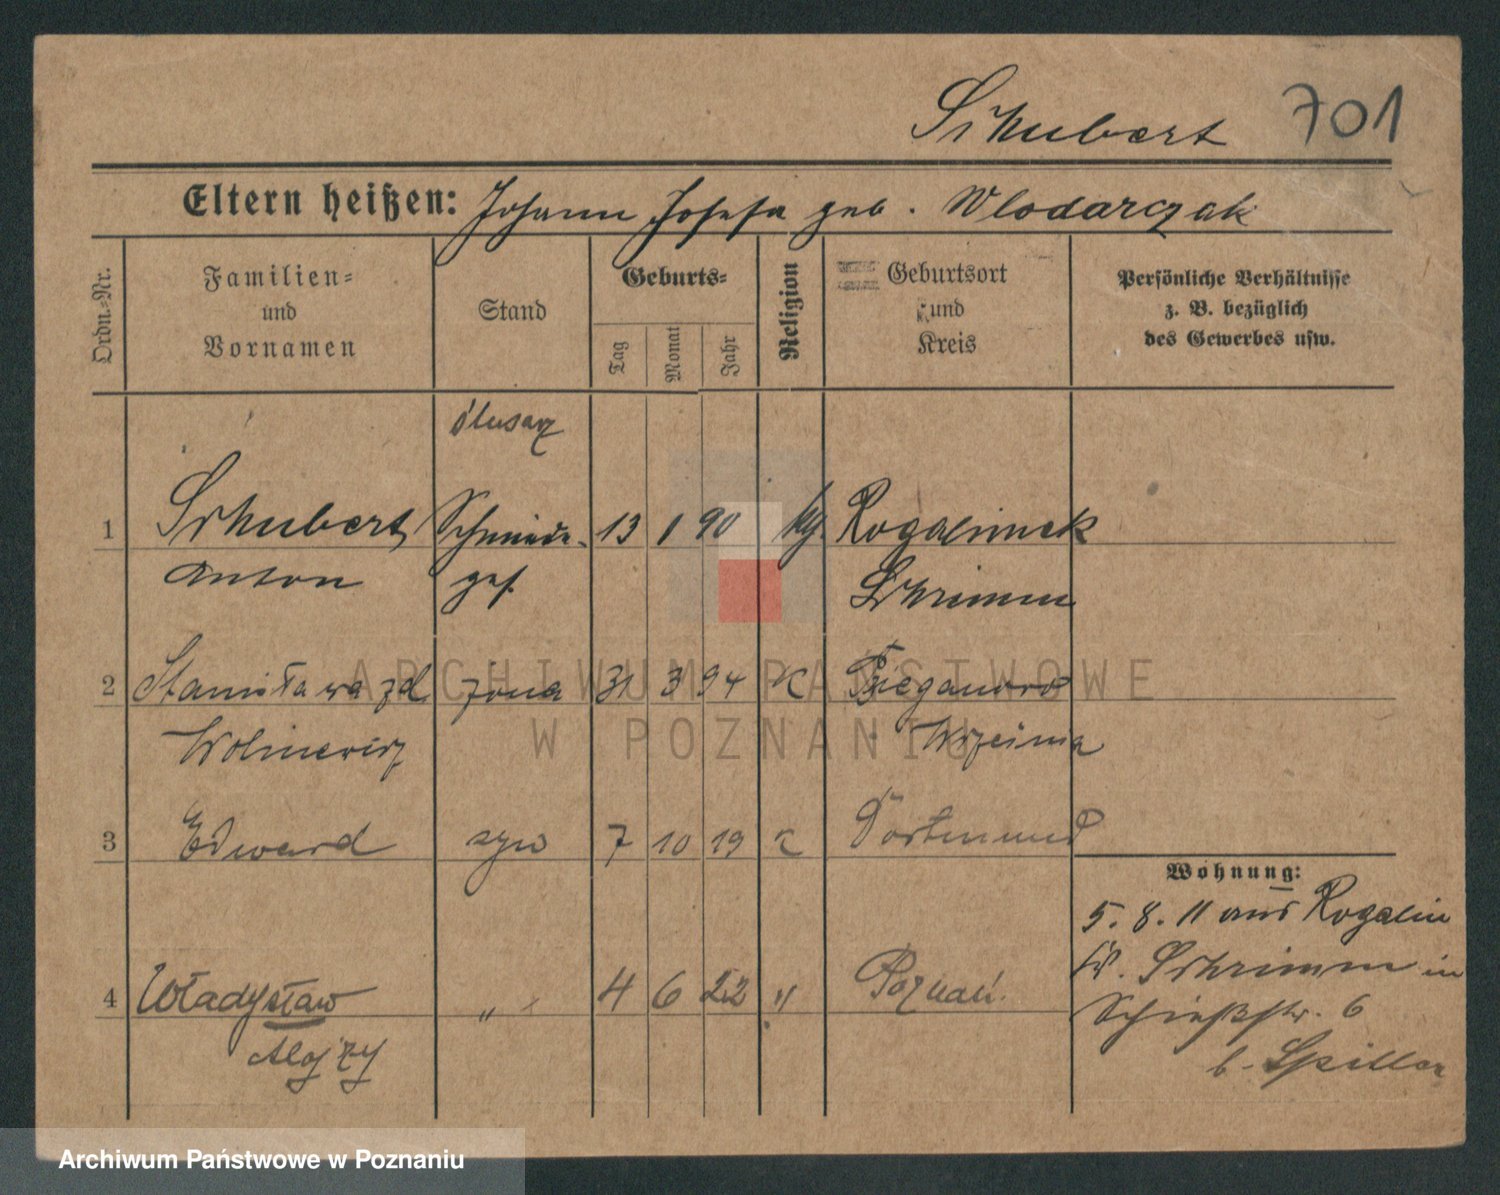 Schubert 701
Eltern heißen: Johann Josefa geb. Wlodarczak
Ordn.-Nr.
Familien-
und
Vornamen
Stand
Geburts-
Tag
Monat
Jahr
Religion
Geburtsort
und
Kreis
Persönliche Verhältnisse
z. B. bezüglich
des Gewerbes usw.
ślusarz
1 Schubert Schmiede- 13 1 90 Rogalinek
Anton ges. Schrimm
2 Stanisława zd żona 31 3 94 K
Wolniewicz Września
3 Edward syn 7 10 19 K Dortmund
Wohnung:
5. 8. 11 aus Rogalin
Kr. Schrimm in
4 Władysław „ 4 6 22 „ Poznań.
Schießstr. 6
Alojzy
b. Spiller
ARCHIWUM PAŃSTWOWE
W POZNANIU
Archiwum Państwowe w Poznaniu